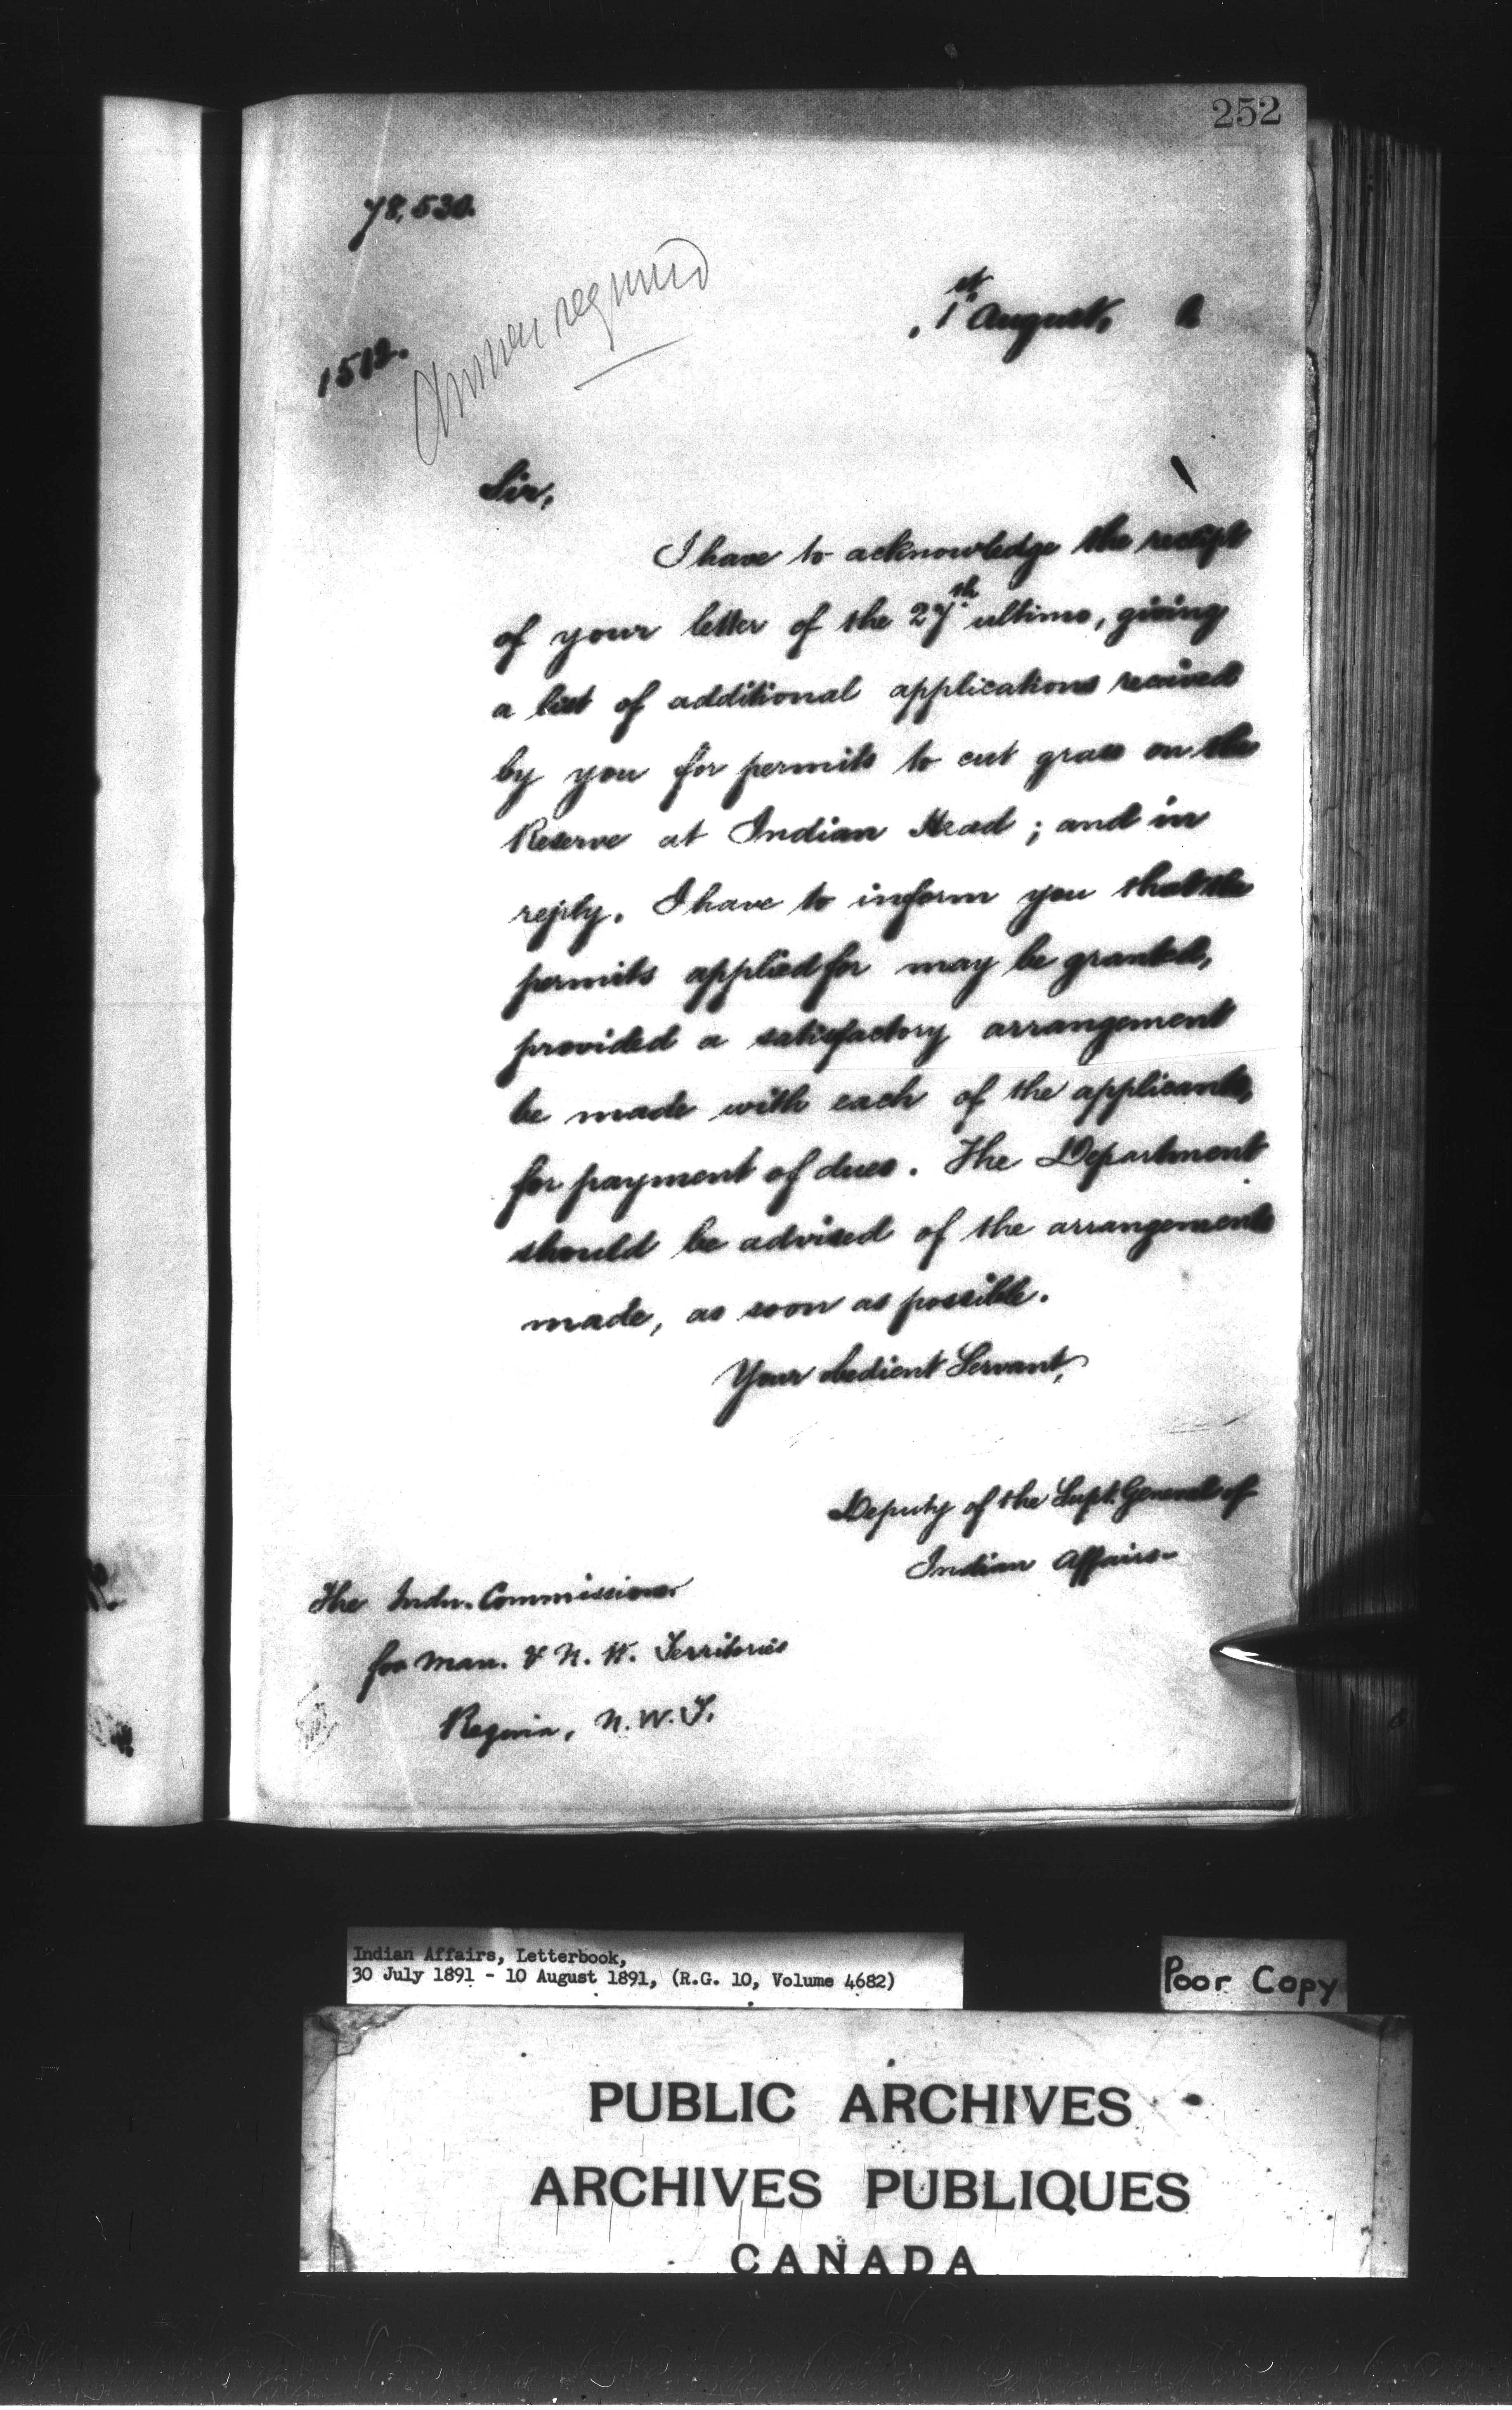 252
78,530.
Answer required
1st August,
Sir,
I have to acknowledge the receipt
of your letter of the 27th ultimo, giving
a list of additional applications received
by you for permits to cut grass on the
Reserve at Indian Head ; and in
reply. I have to inform you that the
permits applied for may be granted,
provided a satisfactory arrangement
be made with each of the applicants,
for payment of dues. The Department
should be advised of the arrangements
made, as soon as possible.
Your obedient Servant,
Deputy of the Supt. General of
Indian Affairs-
The Indn. Commissioner
for Man. & N. W. Territories
Regina, N.W.T.
Indian Affairs, Letterbook,
30 July 1891 - 10 August 1891, (R.G. 10, Volume 4682)
Poor Copy
PUBLIC ARCHIVES
ARCHIVES PUBLIQUES
CANADA